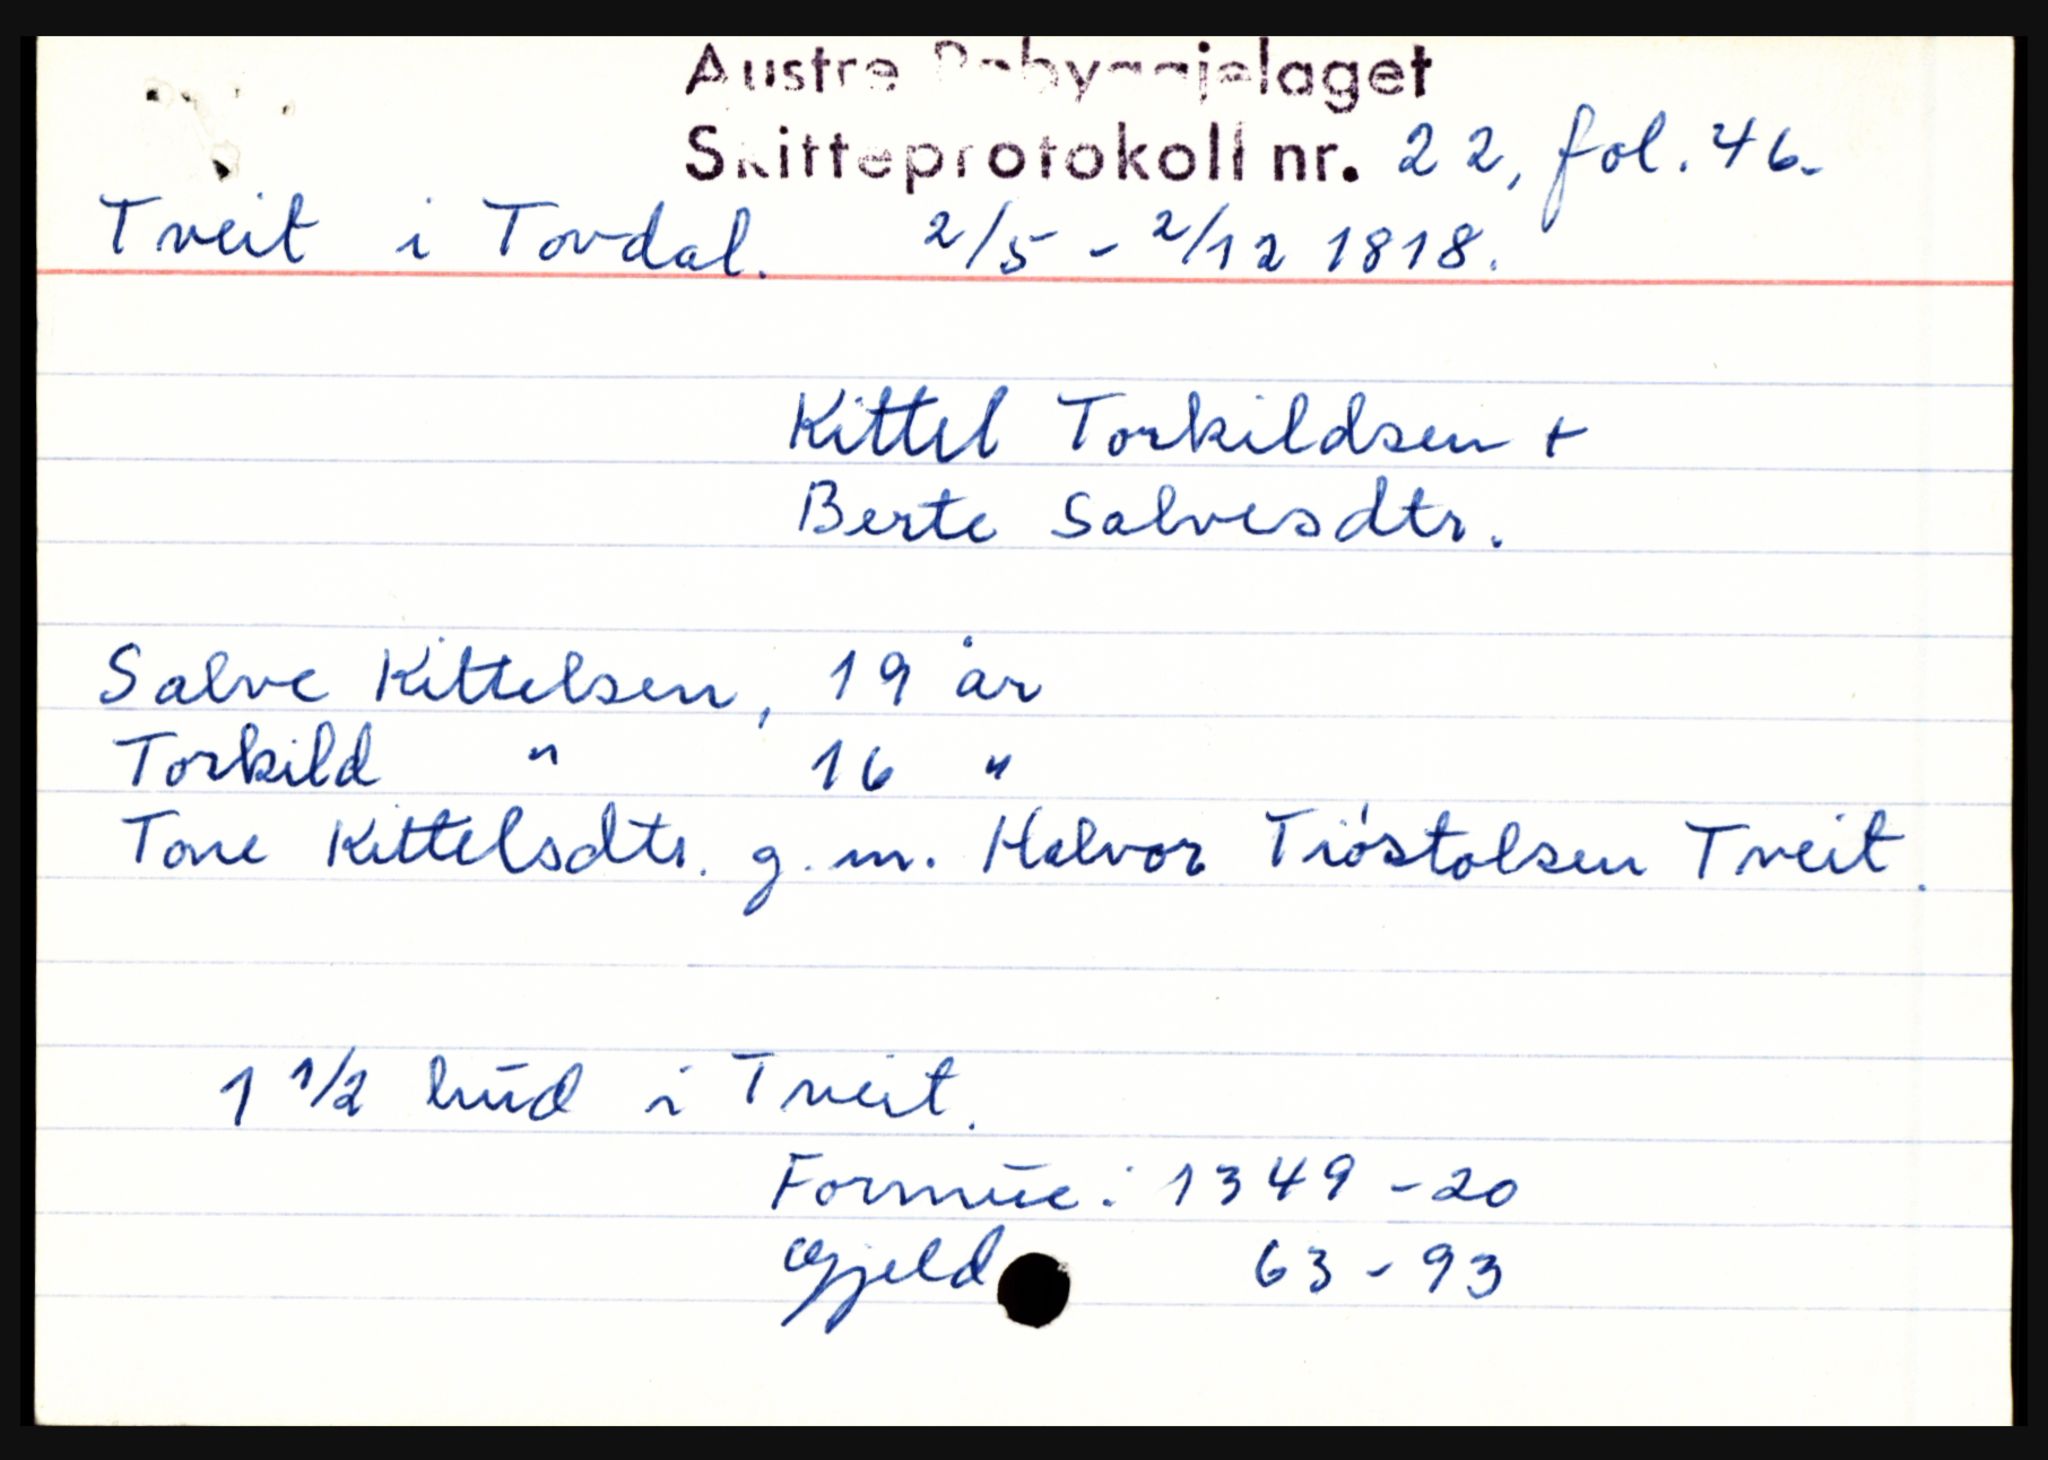 Austre Robyggjelaget
Skifteprotokoll nr. 22, fol. 46.
Tveit i Tovdal. 2/5 - 2/12 1818.
Kittel Torkildsen +
Berte Salvesdtr.
Salve Kittelsen, 19 år
Torkild " 16 "
Tone Kittelsdtr. g. m. Halvor Tióstolsen Tveit.
1 1/2 hud i Tveit.
Formue: 1349 - 20
Gjeld 63 - 93